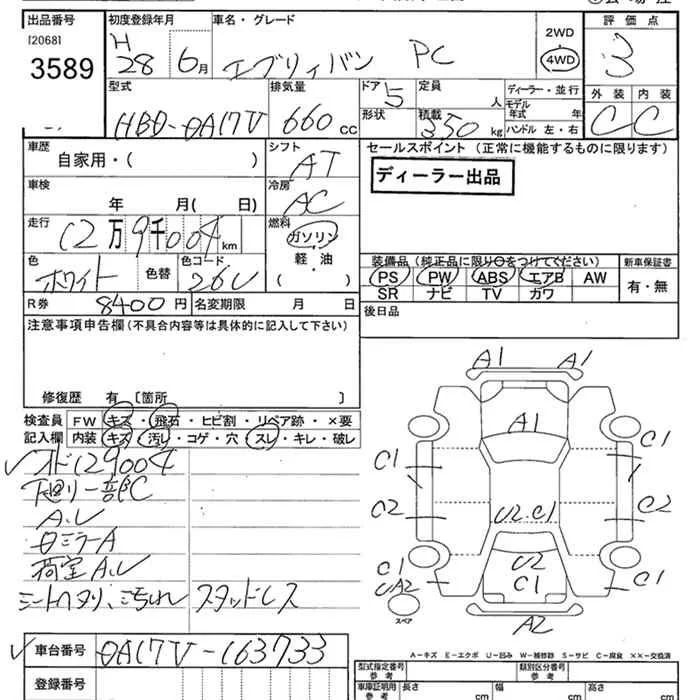 出品番号 初度登録年月 車名・グレード 評価点
[2068] H 28 6月 エブリイバン PC 2WD 4WD 3
3589 外装 内装
型式 排気量 ドア 定員 ディーラー・並行 C C
HBD-DA17V 660cc 5 人 モデル年式 年
形状 積載 350kg ハンドル 左・右
車歴 シフト セールスポイント (正常に機能するものに限ります)
自家用・( ) AT ディーラー出品
車検 冷房
年 月( 日) AC
走行 燃料
12万9千004km ガソリン
色 色コード 軽油 装備品 (純正品に限り○をつけてください) 新車保証書
ホワイト 色替 26U ( ・ ) PS PW ABS エアB AW 有・無
R券 8400円 名変期限 月 日 SR ナビ TV カワ
注意事項申告欄 (不具合内容等は具体的に記入して下さい) 後日品
修復歴 有 [箇所 ]
検査員 FW キズ・飛石・ヒビ割・リペア跡・×要
記入欄 内装 キズ・汚れ・コゲ・穴・スレ・キレ・破レ
✓オド129004
下廻り一部C
A.U
ミラーA
荷室A.U
シートヘタリ、汚れ スタッドレス
✓車台番号 DA17V-163733
登録番号
A1 A1
A1
C1 C1
C2 U2.C1 C2
C1 U2 C1
UA2 C1
スペア A2
A-キズ E-エクボ U-凹み W-補修跡 S-サビ C-腐食 ××-交換済
型式指定番号 参考 類別区分番号 参考
車庫証明用 参考 長さ cm 幅 cm 高さ cm